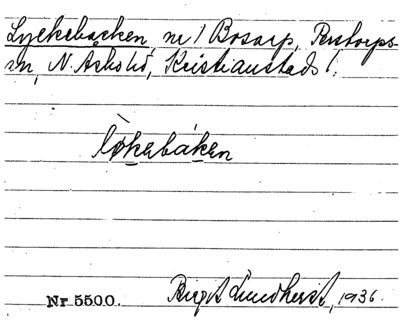 Lyckebacken, nr 1 Bosarp, Perstorps-
sn, N. Åsbo hd, Kristianstads l.
lø̀kebáken
Nr 5500. Birgit Lundkvist, 1936.